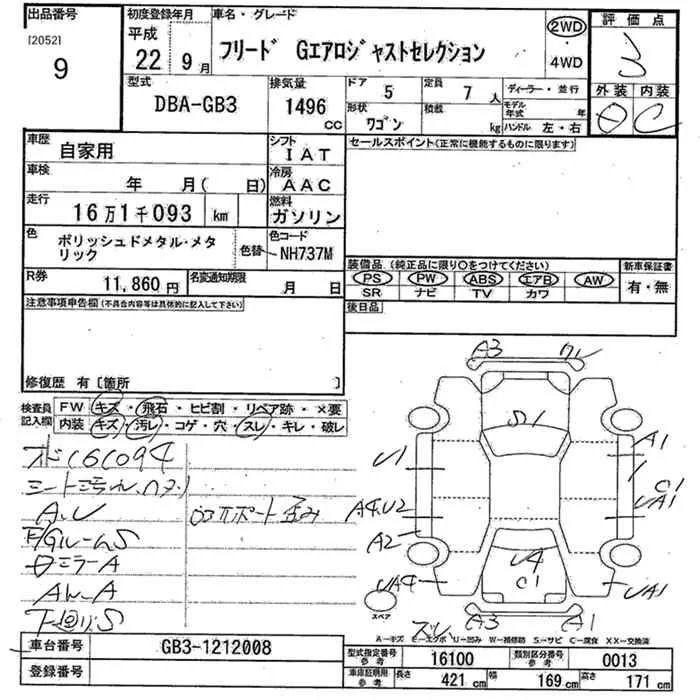 出品番号
[2052]
9
初度登録年月
平成
22 9月
車名・グレード
フリード Gエアロジャストセレクション
2WD
・
4WD
評価点
3
外装 内装
C
型式
DBA-GB3
排気量
1496
CC
ドア 5
定員 7 人
ディーラー・並行
形状 ワゴン
積載 kg
モデル年式 年
ハンドル 左・右
車歴
自家用
シフト
IAT
車検
年 月( 日)
冷房
AAC
走行
16万1千093 km
燃料
ガソリン
色
ポリッシュドメタル・メタリック
色替
色コード
NH737M
R券
11,860円
名変通知期限
月 日
セールスポイント(正常に機能するものに限ります)
装備品 (純正品に限り○をつけてください)
新車保証書
PS PW ABS エアB AW
有・無
SR ナビ TV カワ
後日品
注意事項申告欄(不具合内容等は具体的に記入して下さい)
修復歴 有〔箇所 〕
検査員記入欄
FW キズ・飛石・ヒビ割・リペア跡・×要
内装 キズ・汚レ・コゲ・穴・スレ・キレ・破レ
A.U
ミラーA
下廻りS
A3
S1
A1
U1
C1
UA1
A4.U2
A2
U4
C1
UA4
UA1
スペア
A3
A1
A—キズ E—エクボ U—凹み W—補修跡 S—サビ C—腐食 XX—交換済
車台番号
GB3-1212008
登録番号
型式指定番号 参考
16100
類別区分番号 参考
0013
車庫証明用 参考
長さ 421 cm
幅 169 cm
高さ 171 cm